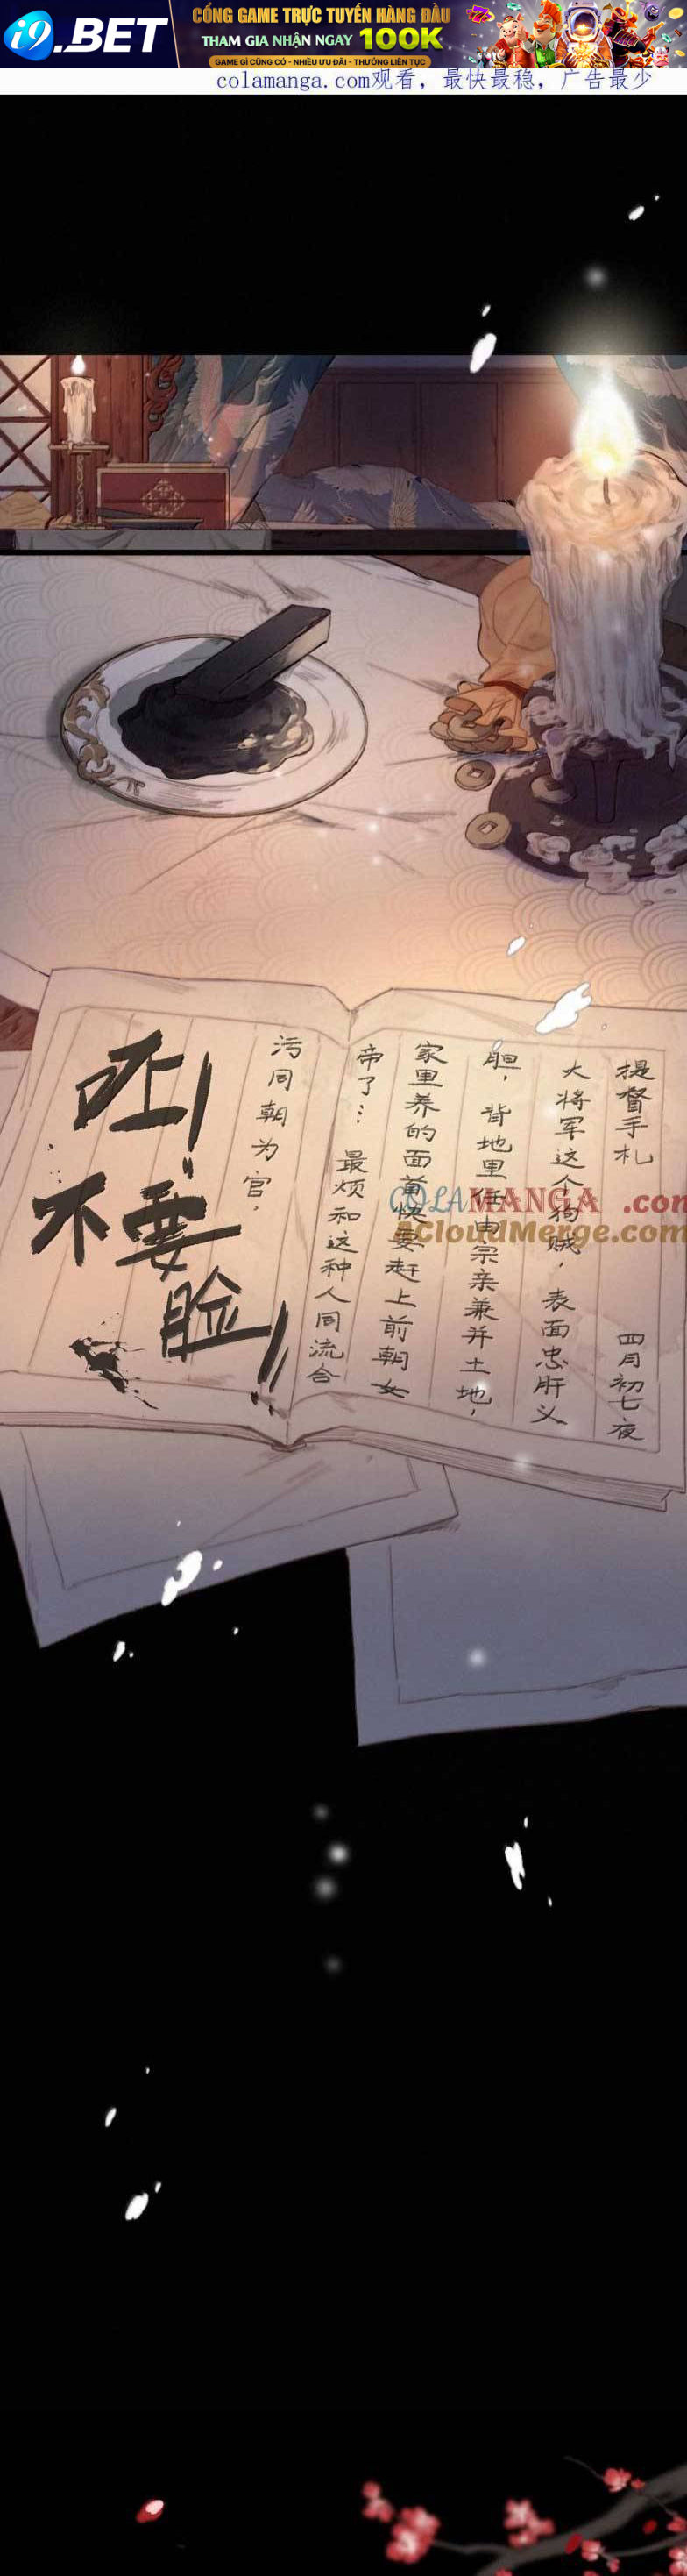 i9.BET
CỔNG GAME TRỰC TUYẾN HÀNG ĐẦU
THAM GIA NHẬN NGAY 100K
GAME GÌ CŨNG CÓ - NHIỀU ƯU ĐÃI - THƯỞNG LIÊN TỤC
777
colamanga.com观看，最快最稳，广告最少
提督手札 四月初七夜
大将军这个狗贼，表面忠肝义
胆，背地里任由宗亲兼并土地，
家里养的面首快要赶上前朝女
帝了… 最烦和这种人同流合
污同朝为官，
呸！
不要
脸！！
COLAMANGA.com
AcloudMerge.com